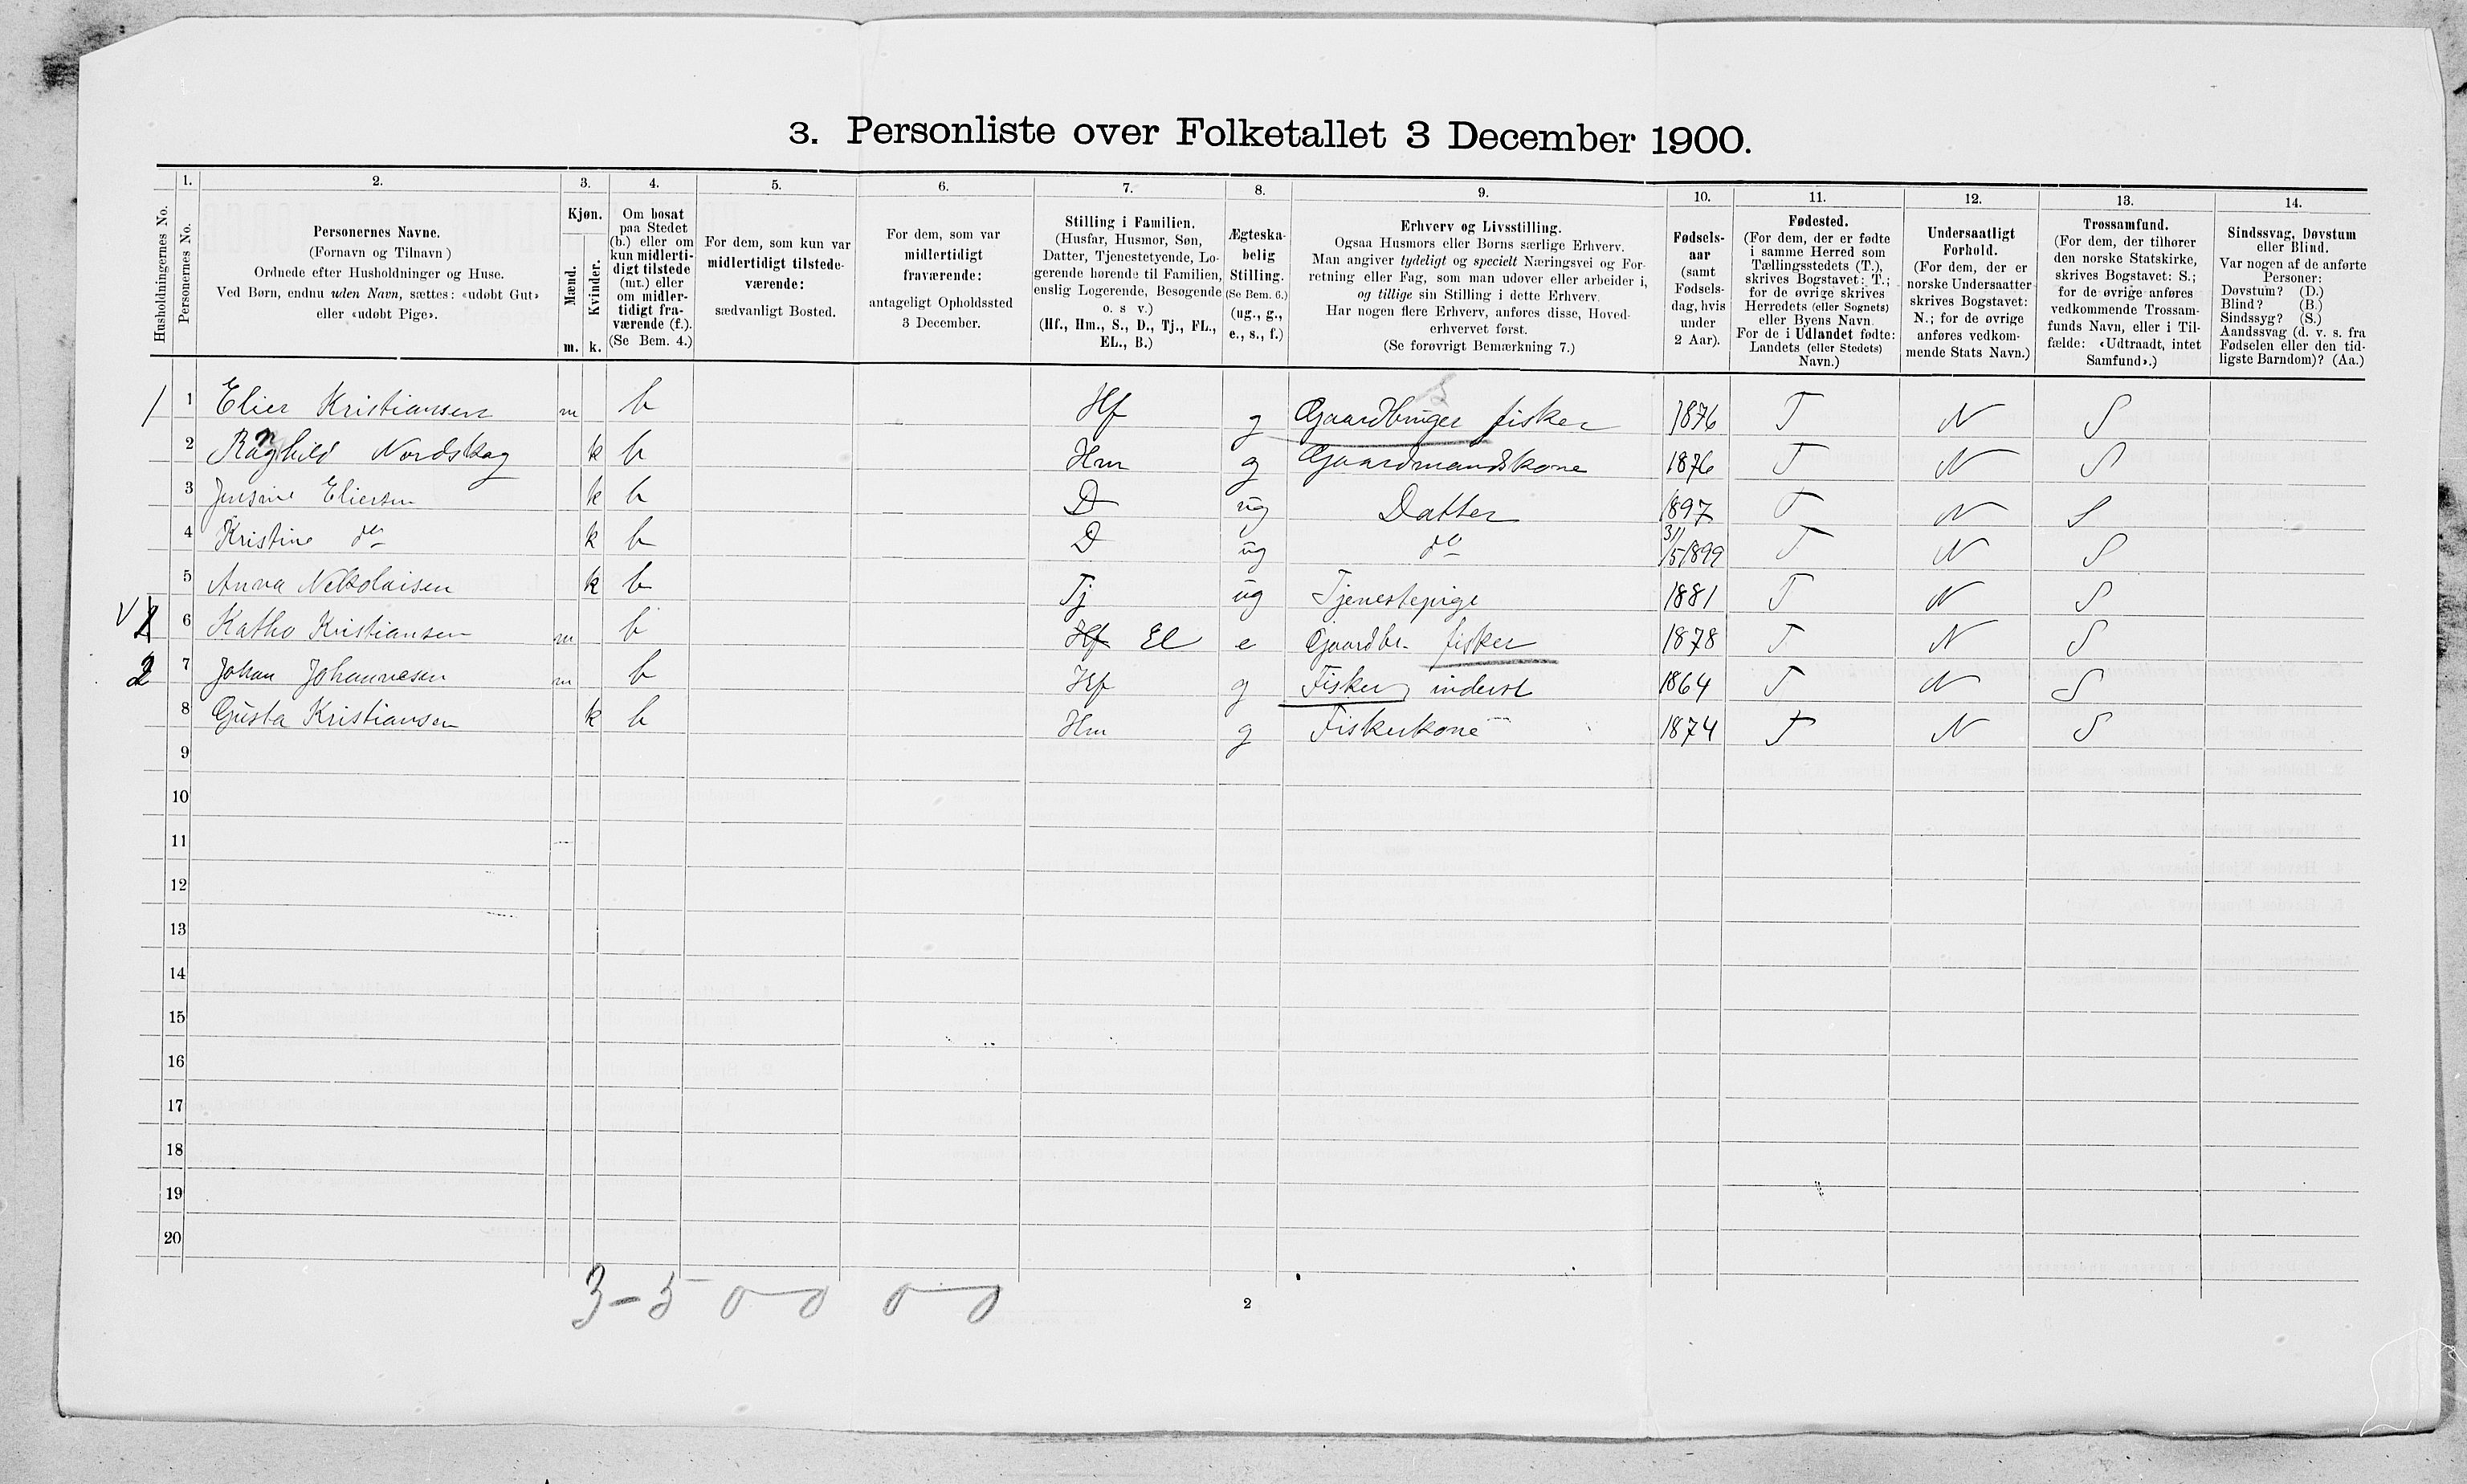 3. Personliste over Folketallet 3 December 1900.
Husholdningernes No.
1. Personernes No.
2. Personernes Navne.
(Fornavn og Tilnavn)
Ordnede efter Husholdninger og Huse.
Ved Børn, endnu uden Navn, sættes: «udøbt Gut»
eller «udøbt Pige».
3. Kjøn.
Mænd. m.
Kvinder. k.
4. Om bosat
paa Stedet
(b.) eller om
kun midlerti-
digt tilstede
(mt.) eller
om midler-
tidigt fra-
værende (f.).
(Se Bem. 4.)
5. For dem, som kun var
midlertidigt tilstede-
værende:
sædvanligt Bosted.
6. For dem, som var
midlertidigt
fraværende:
antageligt Opholdssted
3 December.
7. Stilling i Familien.
(Husfar, Husmor, Søn,
Datter, Tjenestetyende, Lo-
gerende hørende til Familien,
enslig Logerende, Besøgende
o. s v.)
(Hf., Hm., S., D., Tj., FL.,
EL., B.)
8. Ægteska-
belig
Stilling.
(Se Bem. 6.)
(ug., g.,
e., s., f.)
9. Erhverv og Livsstilling.
Ogsaa Husmors eller Børns særlige Erhverv.
Man angiver tydeligt og specielt Næringsvei og For-
retning eller Fag, som man udøver eller arbeider i,
og tillige sin Stilling i dette Erhverv.
Har nogen flere Erhverv, anføres disse, Hoved-
erhvervet først.
(Se forøvrigt Bemærkning 7.)
10. Fødsels-
aar
(samt
Fødsels-
dag, hvis
under
2 Aar).
11. Fødested.
(For dem, der er fødte
i samme Herred som
Tællingsstedets (T.),
skrives Bogstavet: T.;
for de øvrige skrives
Herredets (eller Sognets)
eller Byens Navn.
For de i Udlandet fødte:
Landets (eller Stedets)
Navn.)
12. Undersaatligt
Forhold.
(For dem, der er
norske Undersaatter
skrives Bogstavet:
N.; for de øvrige
anføres vedkom-
mende Stats Navn.)
13. Trossamfund.
(For dem, der tilhører
den norske Statskirke,
skrives Bogstavet: S.;
for de øvrige anføres
vedkommende Trossam-
funds Navn, eller i Til-
fælde: «Udtraadt, intet
Samfund».)
14. Sindssvag, Døvstum
eller Blind.
Var nogen af de anførte
Personer:
Døvstum? (D.)
Blind? (B.)
Sindssyg? (S.)
Aandssvag (d. v. s. fra
Fødselen eller den tid-
ligste Barndom)? (Aa.)
1 Elier Kristiansen m b Hf g Gaardbruger fisker 1876 T N S
2 Ragnhild Nordskag k b Hm g Gaardmandskone 1876 T N S
3 Jensine Eliersen k b D ug Datter 1897 T N S
4 Kristine do k b D ug do 31/5 1899 T N S
5 Anna Nikolaisen k b Tj ug Tjenestepige 1881 T N S
6 Katho Kristiansen m b Hf El e Gaardbr. fisker 1878 T N S
2 7 Johan Johannesen m b Hf g Fisker, inderst 1864 T N S
8 Gusta Kristiansen k b Hm g Fiskerkone 1874 T N S
9
10
11
12
13
14
15
16
17
18
19
20
3-5 0-0 0-0
2